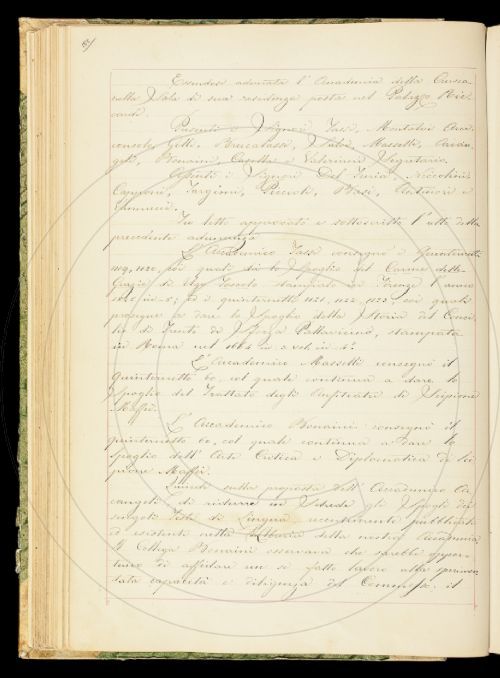 Essendosi adunata l'Accademia della Crusca
nella Sala di sua residenza posta nel Palazzo Ric-
cardi.
Presenti i Signori Tassi, Montalvi Arci-
consolo, Gelli, Brucalassi, Salvi, Masselli, Arcan-
geli, Bonaini, Casella e Valeriani Segretario.
Assenti i Signori Del Furia, Niccolini,
Capponi, Targioni, Piccioli, Basi, Antinori e
Vannucci.
Fu letto approvato e sottoscritto l'atto della
precedente adunanza
L'Accademico Tassi consegnò i Quinternetti
1119, 1120, coi quali dà lo Spoglio del Carme delle
Grazie di Ugo Foscolo stampato in Firenze l'anno
in-8; ed i quinternetti 1121, 1122, 1123 coi quali
prosegue a dare lo Spoglio della Storia del Conci-
lio di Trento di Sforza Pallavicino, stampata
in Roma nel vol. in 4.
L'Accademico Masselli consegnò il
Quinternetto 60, col quale continua a dare lo
Spoglio del Trattato degli Anfiteatri di Scipione
Maffei.
L'Accademico Bonaini consegnò il
quinternetto 60, col quale continua a dare lo
Spoglio dell'Arte Critica e Diplomatica di Sci-
pione Maffei.
Quindi sulla proposta dell'Accademico Ar-
cangeli di ridurre in Schede gli Spogli dei
singoli Testi di Lingua recentemente pubblicati
ed esistenti nella Libreria della nostra Accademia
il Collega Bonaini osservava che sarebbe oppor-
tuno di affidare un sì fatto lavoro alla sperimen-
tata capacità e diligenza del Commesso. il